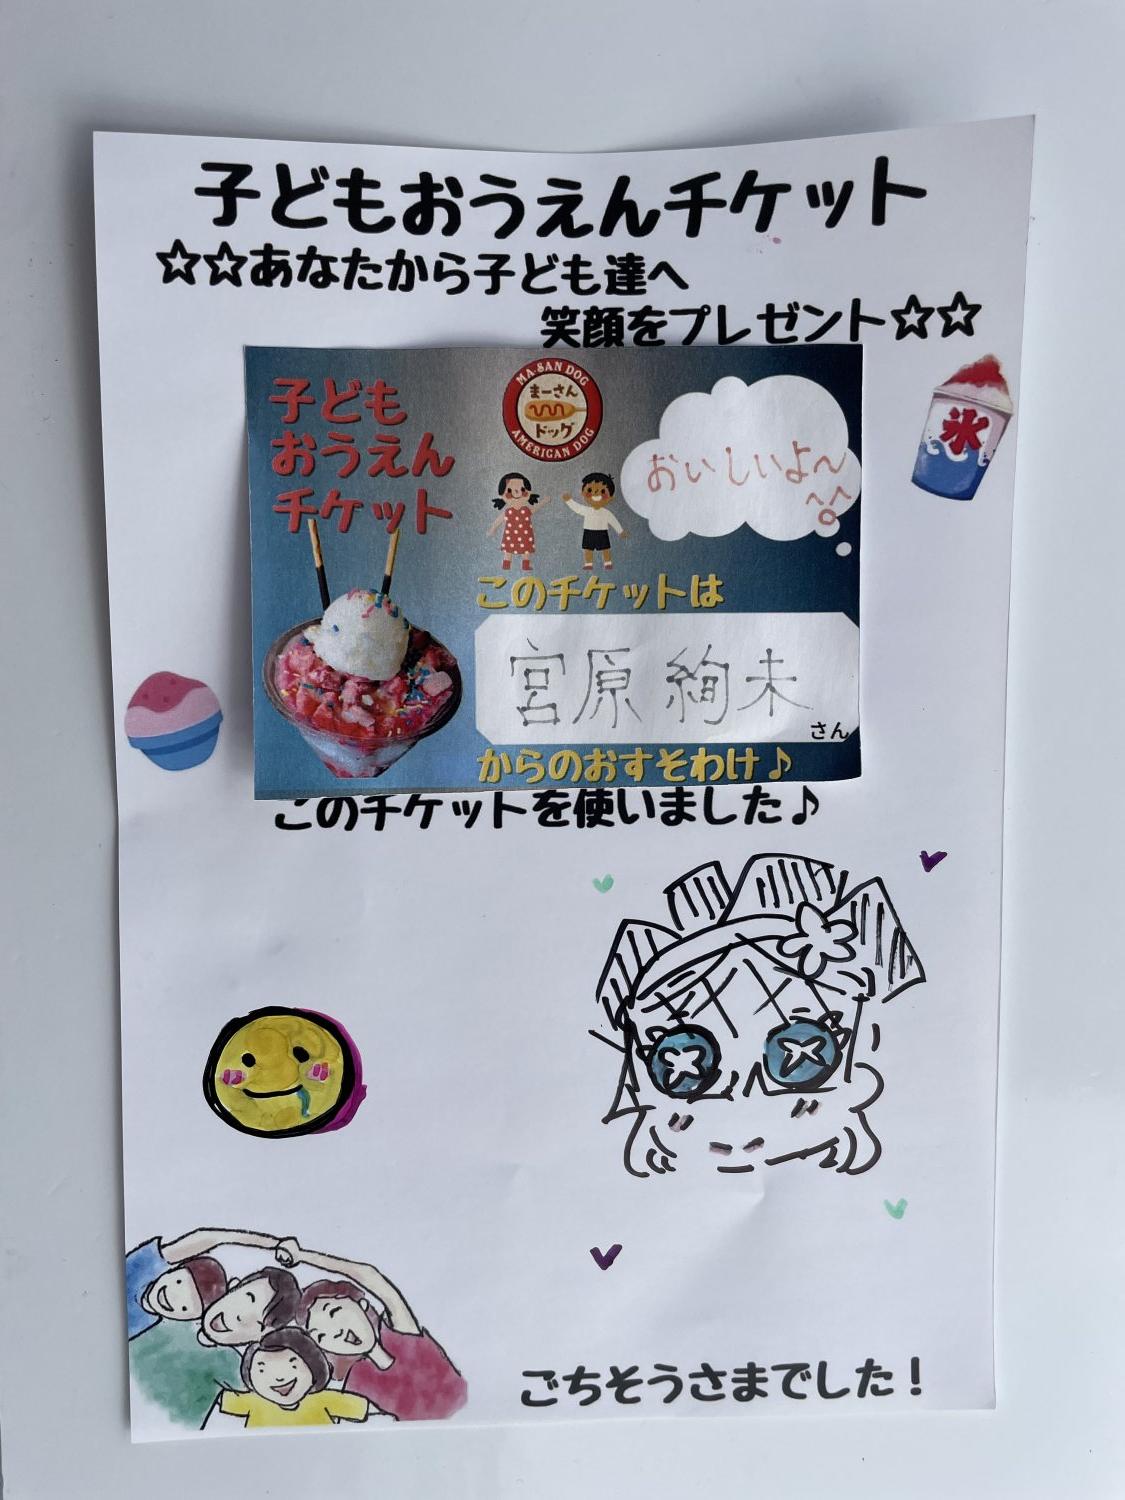 子どもおうえんチケット
☆☆あなたから子ども達へ
笑顔をプレゼント☆☆
氷
子ども
おうえん
チケット
MA-SAN DOG
まーさん
ドッグ
AMERICAN DOG
おいしいよ〜
このチケットは
宮原 絢未
さん
からのおすそわけ♪
このチケットを使いました♪
ごちそうさまでした!